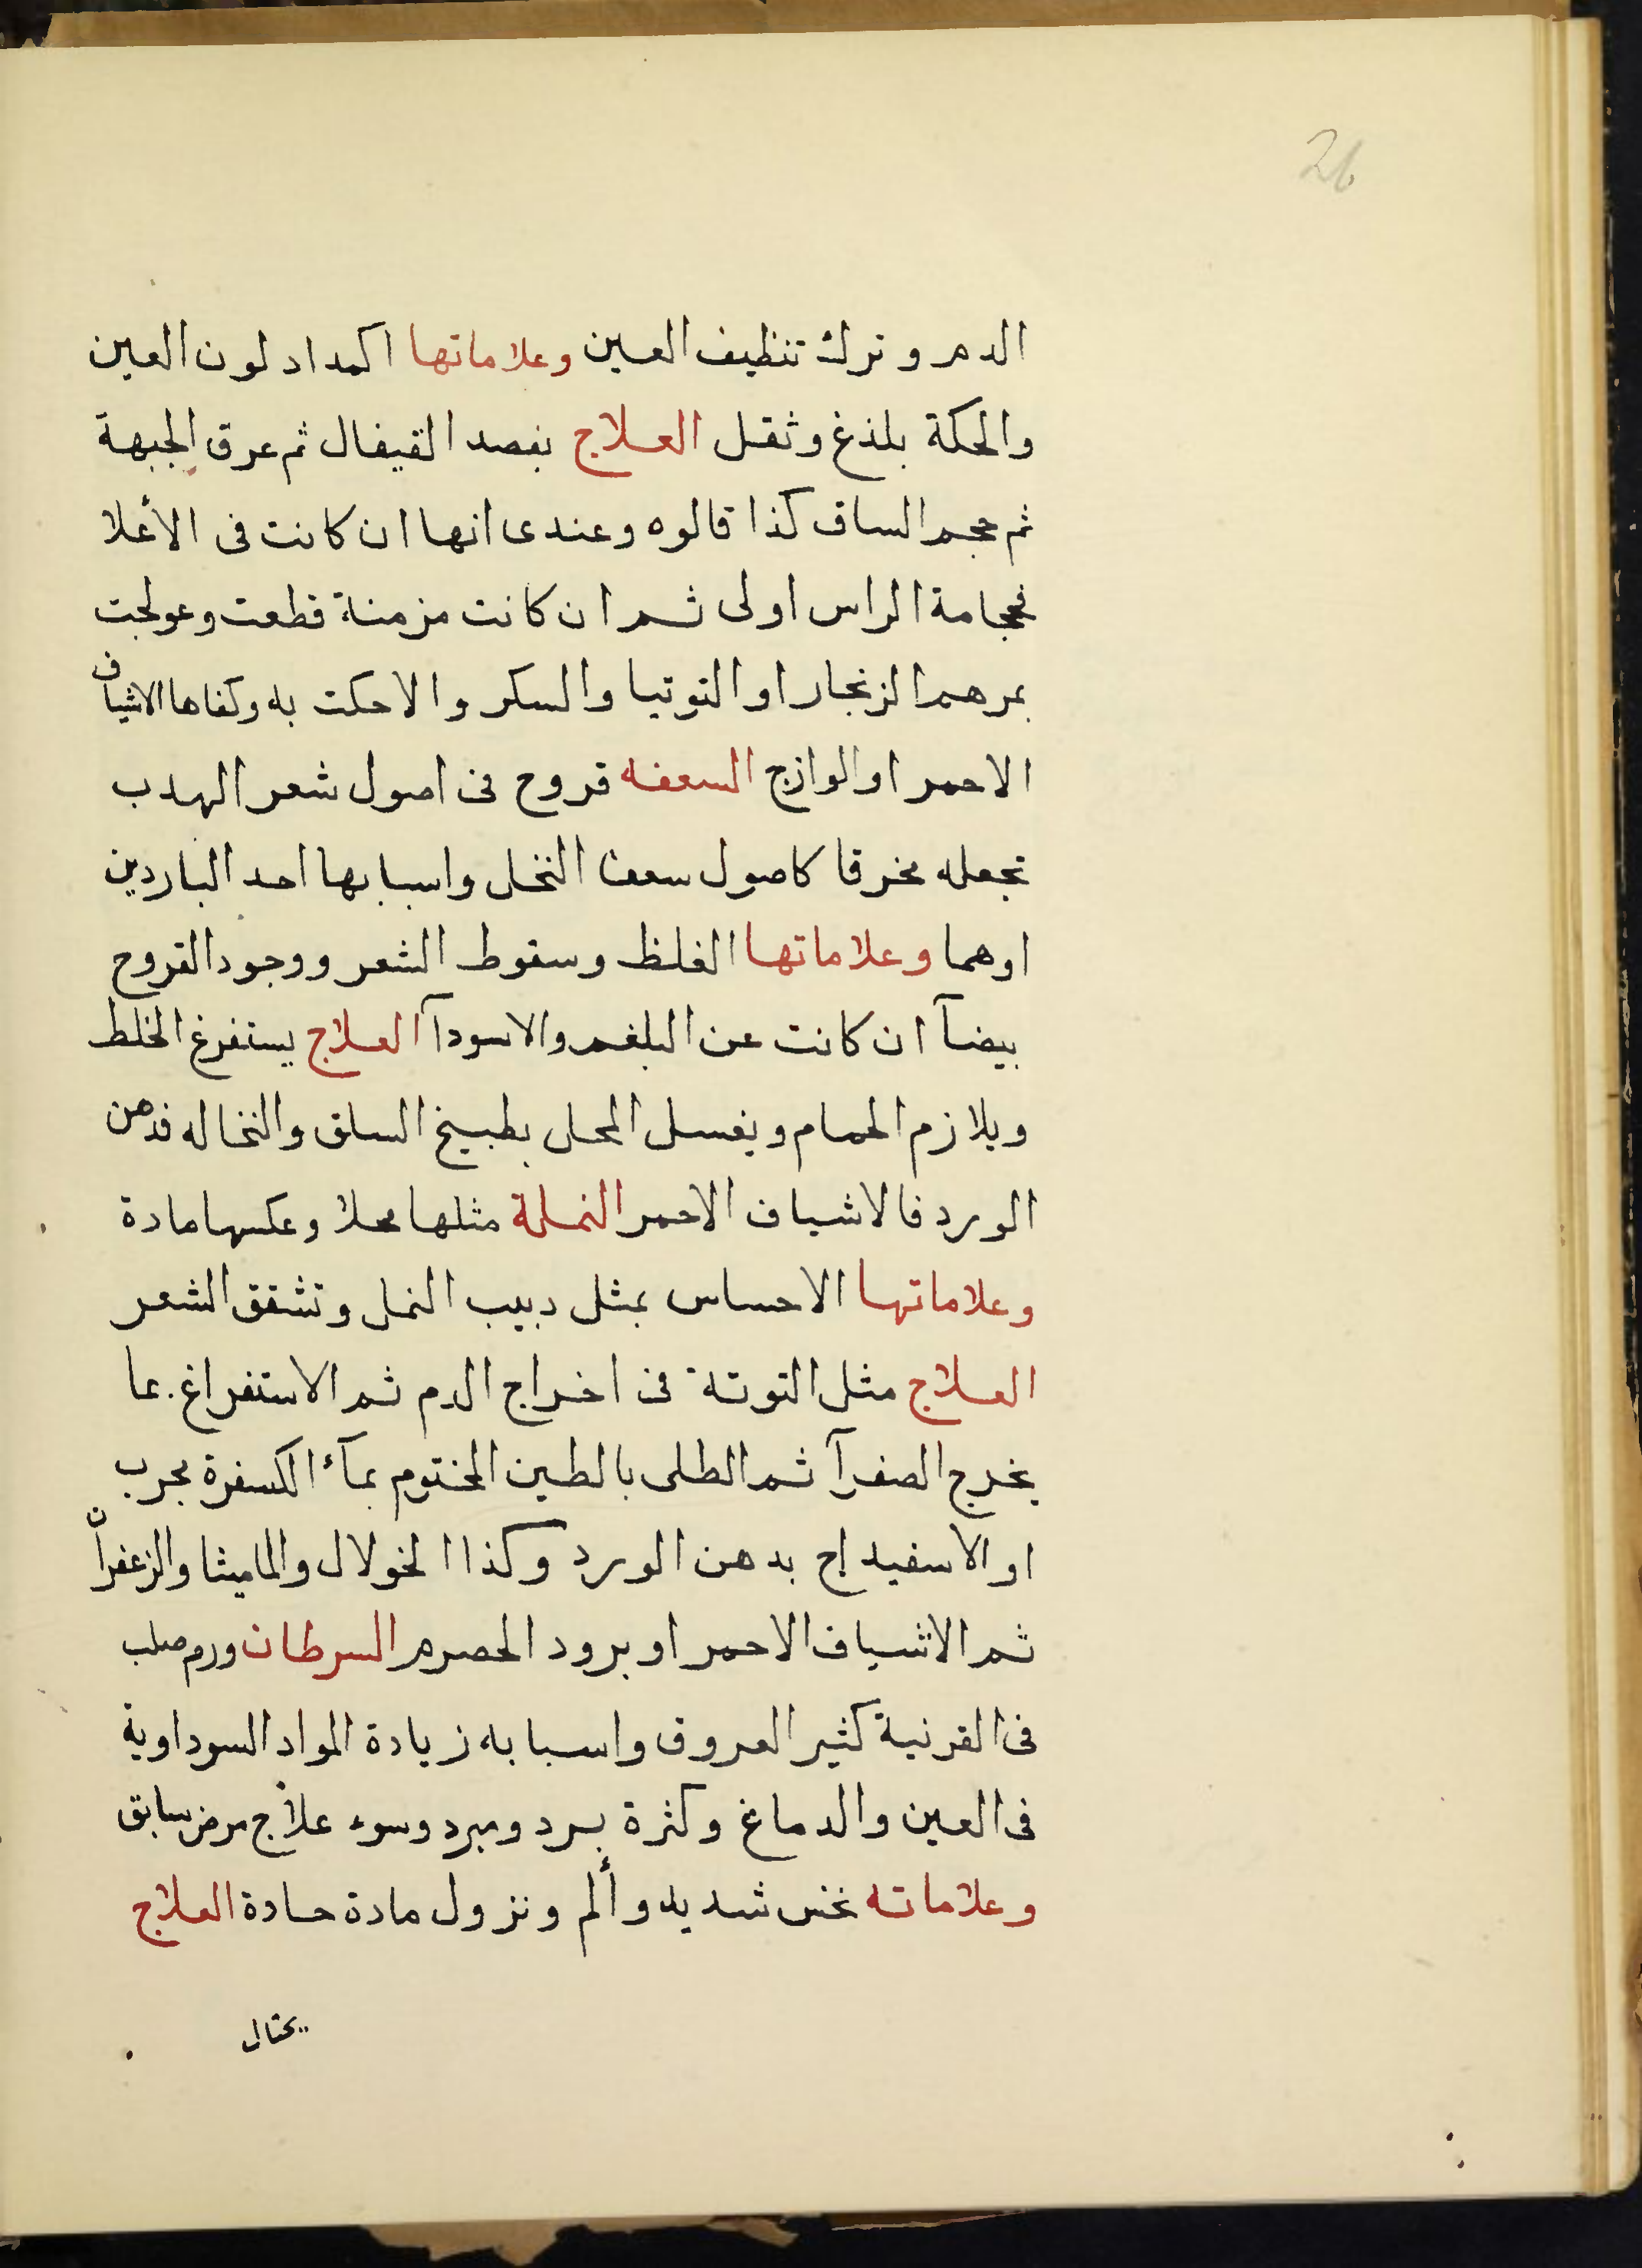 26
الدم وترك تنظيف العين وعلاماتها اكمداد لون العين
والحكة بلذغ وثقل العلاج بفصد القيفال ثم عرق الجبهة
ثم حجم الساق كذا قالوه وعندى انها ان كانت فى الأعلا
فحجامة الراس اولى ثم ان كانت مزمنة قطعت وعولجت
بمرهم الزنجار او التوتيا والسكر والاحكت به وكفاها الاشياف
الاحمر او الوازج السعفه قروح فى اصول شعر الهدب
تجعله مخرقا كاصول سعف النخل واسبابها احد الباردين
اوهما وعلاماتها الغلظ وسقوط الشعر ووجود القروح
بيضآ ان كانت عن البلغم والاسودآ العلاج يستفرغ الخلط
ويلازم الحمام ويغسل المحل بطبيخ السلق والنخاله فدهن
الورد فالاشياف الاحمر النملة مثلها محلا وعكسها مادة
وعلاماتها الاحساس بمثل دبيب النمل وتشقق الشعر
العلاج مثل التوتة فى اخراج الدم ثم الاستفراغ بما
يخرج الصفرآ ثم الطلى بالطين المختوم بمآء الكسفرة مجرب
او الاسفيداج بدهن الورد وكذا الخولال والماميثا والزعفران
ثم الاشياف الاحمر او برود الحصرم السرطان ورم صلب
فى القرنية كثير العروق واسبابه زيادة المواد السوداوية
فى العين والدماغ وكثرة برد ومبرد وسوء علاج مرض سابق
وعلاماته نخس شديد وألم ونزول مادة حادة العلاج
يحتال